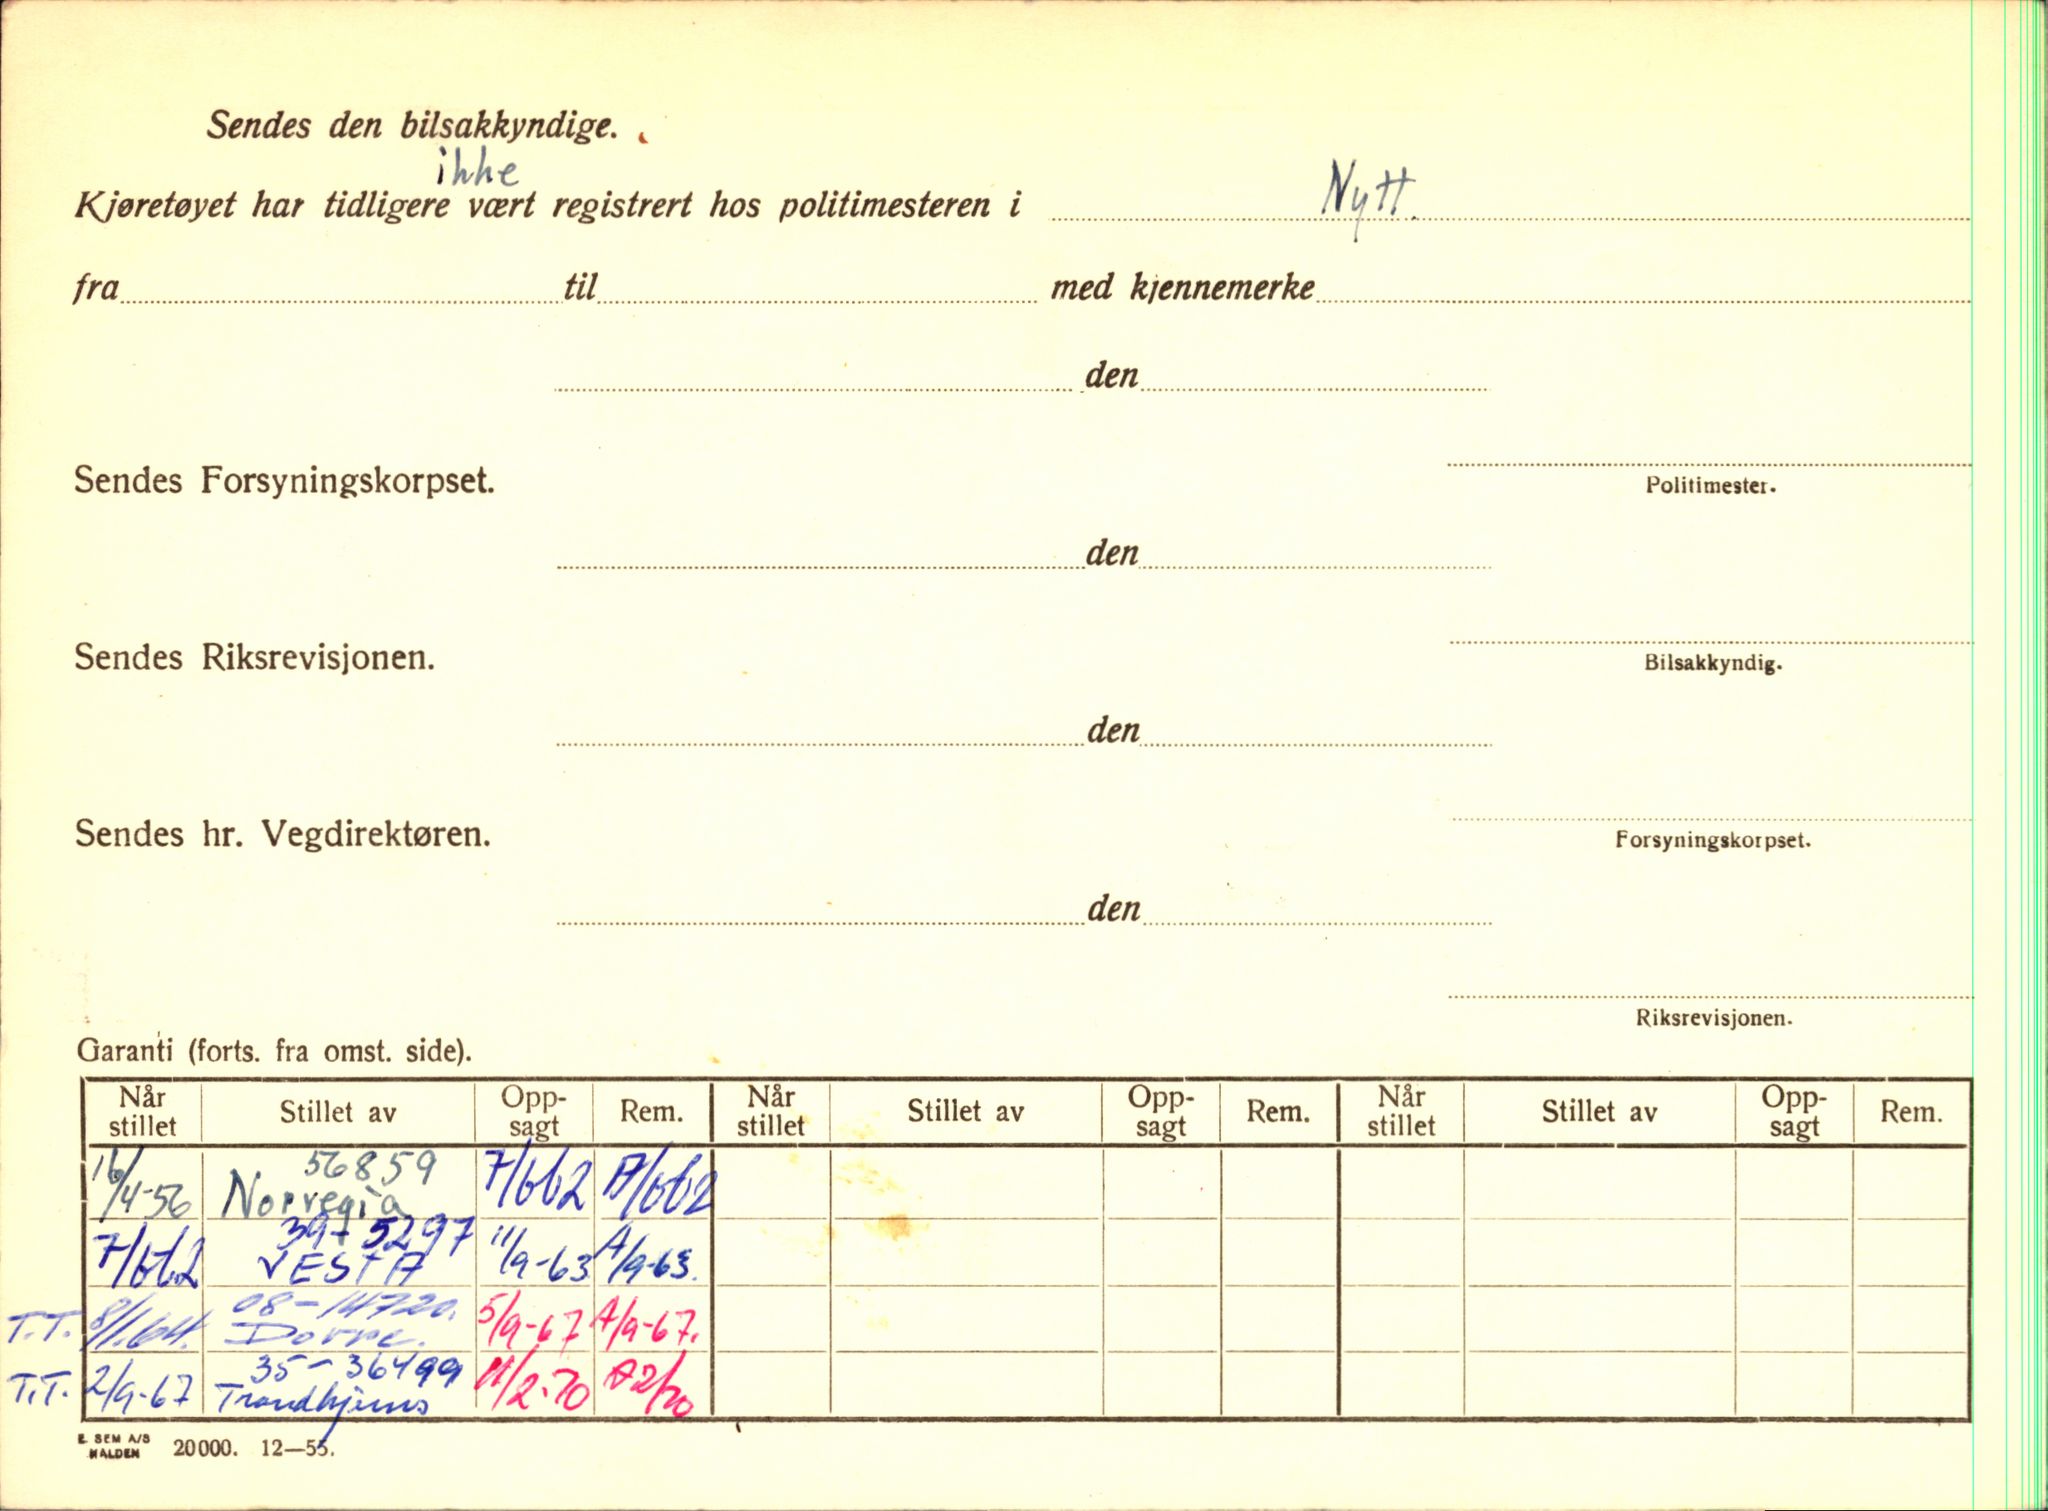 Sendes den bilsakkyndige.
ikke
Kjøretøyet har tidligere vært registrert hos politimesteren i Nytt.
fra til med kjennemerke
den
Sendes Forsyningskorpset.
Politimester.
den
Sendes Riksrevisjonen.
Bilsakkyndig.
den
Sendes hr. Vegdirektøren.
Forsyningskorpset.
den
Riksrevisjonen.
Garanti (forts. fra omst. side).
Når stillet Stillet av Opp-sagt Rem. Når stillet Stillet av Opp-sagt Rem. Når stillet Stillet av Opp-sagt Rem.
56859
16/4-56 Norvegia 7/662 A/662
39-5297
7/662 VESTA 11/9-63 A/9-63.
08-14720.
T.T. 8/1.64. Dovre. 5/9-67 A/9-67.
35-36499
T.T. 2/9-67 Trondhjems 11/2-70 A2/70
E. SEM A/S
HALDEN 20000. 12—55.